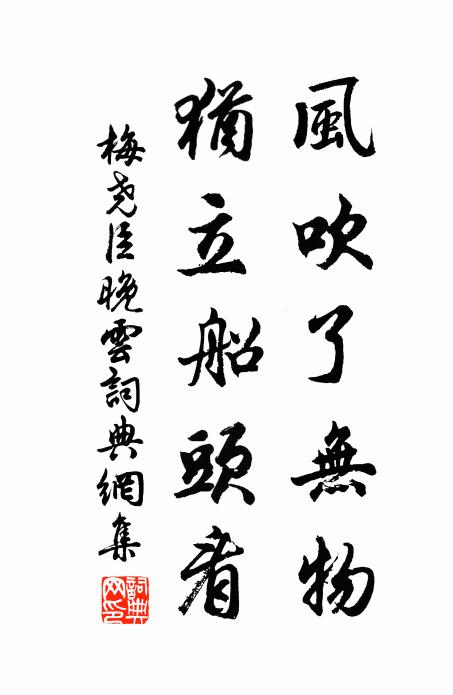 風吹了無物
猶立船頭看
梅尧臣晚雲詞典網集
詞典網印